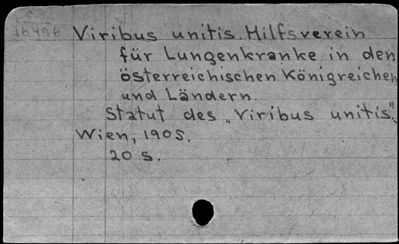 16496
Viribus unitis. Hilfsverein
für Lungenkranke in den
österreichischen Königreichen
und Ländern.
Statut des „Viribus unitis".
Wien, 1905.
20 S.